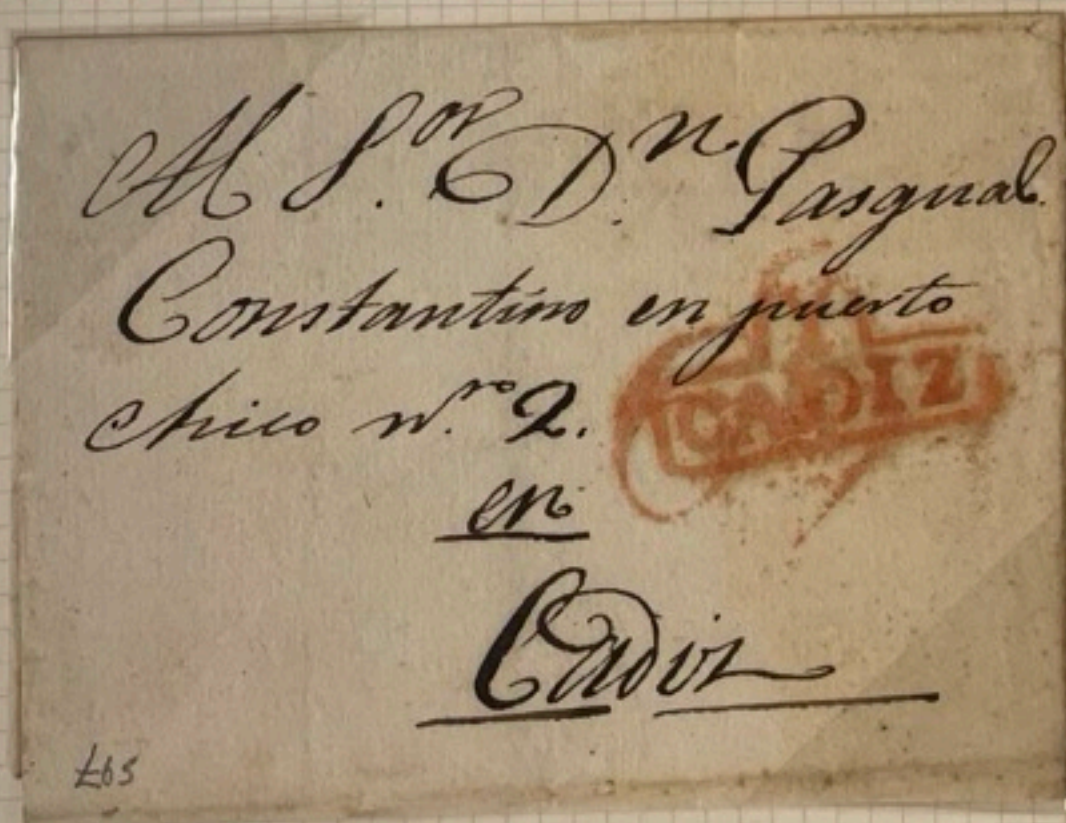 Al S.or D.n Pasqual
Constantino en puerto
chico n.ro 2.
CADIZ
en
Cadiz
£65